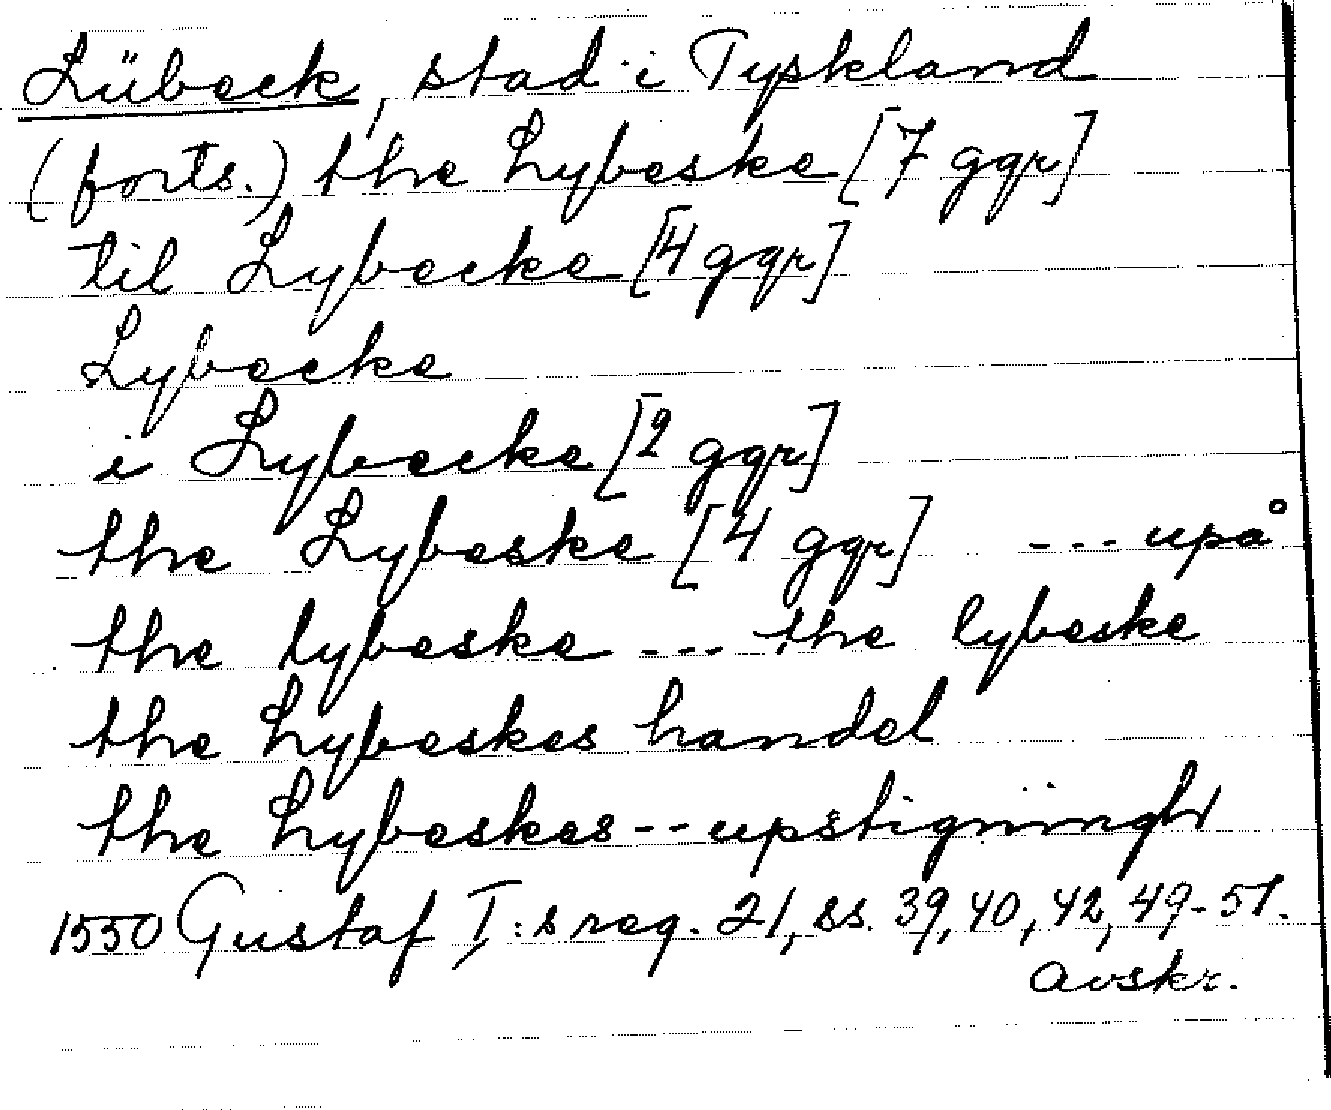 Lübeck, stad i Tyskland
(forts.) the Lybeske [7 ggr]
til Lybecke [4 ggr]
Lybecke
i Lybecke [2 ggr]
the Lybeske [4 ggr] --- upå
the lybeske --- the lybeske
the Lybeskes handel
the Lybeskes -- upstigningh
1550 Gustaf I:s reg. 21, ss. 39, 40, 42, 49-51.
avskr.